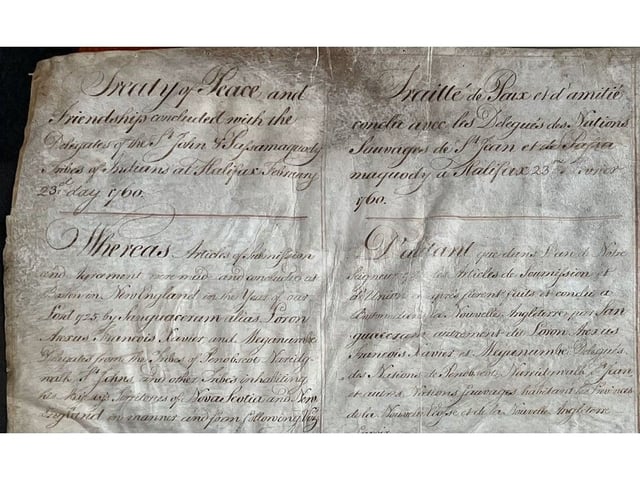 Treaty of Peace and
Friendship concluded with the
Delegates of the St John & Passamaquody
Tribes of Indians at Halifax February
23d day 1760.
Whereas Articles of Submission
and Agreement were made and concluded at
Boston in New England in the Year of our
Lord 1725 by Sanquaaram alias Loron
Arexus Francois Xavier and Meganumbe
Delegates from the Tribes of Penobscot Naridg-
walk St Johns and other Tribes inhabiting
his Territories of Nova Scotia and New
England in manner and form following Viz
Traitté de Paix et d'amitié
conclu avec les Delegués des Nations
Sauvages de St Jean et de Passa
maquody à Halifax 23
1760.
D'autant que dans L'an de Notre
Seigneur les Articles de Soumission et
furent faits et conclu à
La Nouvelle Angleterre par San
quaaram autrement dit Loron Arexus
Francois Xavier et Meganumbe Delegués
des Nations de Penobscot Naridgwalk St Jean
et autres Nations Sauvages habitant les
de la Nouvelle Ecosse et de la Nouvelle Angleterre